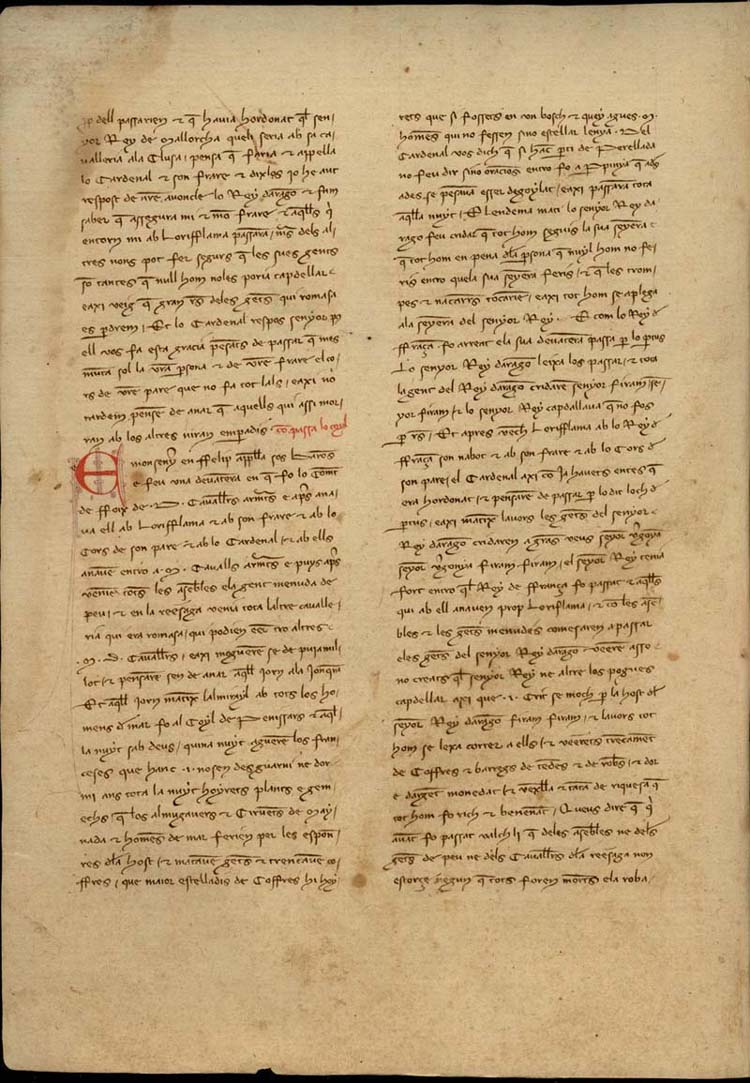 dell passarien ⁊ q̄ hauia hordonat q̄l sen-
yor Rey de Mallorcha quell seria ab sa ca-
ualleria ala Clusa / pensa q̄ faria ⁊ appella
lo Cardenal ⁊ son frare ⁊ dixlos jo he aut
respost de nr̄e auoncle lo Rey darago ⁊ fom
saber q̄ assegura mi ⁊ mō frare ⁊ aq̄lls q̄
entorn mi ab Loriflama passara / m̄s dels al-
tres nons pot fer segurs q̄ les sues gents
so tantes q̄ null hom noles poria capdellar ⁊
eaxi veig q̄ gran deles gēts qui romasa
es ꝑdrem / Et lo Cardenal respos senyor pꝰ
ell vos fa esta gracia pēsats de passar q̄ mes
mūta sol la vr̄a ꝑsona ⁊ de vr̄e frare el co-
rs de vr̄e pare que no fa tot lals / eaxi nō
tardem pēsem de anar q̄ aquells qui assi mor-
ran ab los altres niran emparadis cō passa lo coyll
E monseny en ffelip appella sos Barōs
e feu una deuātera en q̄ fo lo Comte
de ffoix de . D . Cauallr̄s armats e apr̄s ana-
ua ell ab Loriflama ⁊ ab son frare ⁊ ab lo
Cors de son pare ⁊ ab lo Cardenal / ⁊ ab ells
anauē entro a . M . Cauallr̄s armats e puys apr̄s
venie tots les asēbles ela gent menuda de
peu / ⁊ en la reessaga venia tota laltre caualle-
ria qui era romasa / qui podien eēr tro altres
. M . D . Cauallr̄s / eaxi mogueren se de pujamil-
lot / ⁊ pensarē sen de anar aq̄ll jorn ala Jonq̄ra
Et aq̄ll jorn mateix lalmirayl ab tots los ho-
mens d mar fo al Coyl de Penissars ⁊ aq̄l-
la nuyt sab deus / quina nuyt aguerē los fran-
ceses que hanc .i. nosen desguarni ne dor-
mi ans tota la nuyt hoyrets plants e gem-
echs q̄ los almugauers ⁊ siruēts de may-
nada ⁊ homēs de mar ferien per les espon-
res dla host / ⁊ matauē gēts ⁊ trencauē co-
ffres / que maior estelladis de Coffres hi hoy-
rets que si fossets en un bosch ⁊ quey agues . M .
homēs qui no fessen sino estellar lenya . Del
Cardenal vos dich q̄ si hac ꝑti de Perellada
no feu dir sino oracios entro fo a Ppunya q̄ ads
ades se pēsaua esser degoylat / eaxi passara tota
aq̄lla nuyt / E Lendema mati lo senyor Rey da-
rago feu cridar q̄ tot hom seguis la sua seyera ⁊
q̄ tot hom en pena dla ꝑsona q̄ nuyl hom no fe-
ris entro quela sua seyera feris / ⁊ q̄ les trom-
pes ⁊ nacarrs tocarie / eaxi tot hom se aplega
ala seyera del senyor Rey . E com lo Rey d
ffrāça fo arreat ela sua deuātera passa ꝑ lo ꝑtus
Lo senyor Rey darago leixa los passar / ⁊ tota
lagent del Rey darago cridare senyor firam / sē-
yor firam / ⁊ lo senyor Rey capdallaua q̄ no fos
Et apres vech Loriflama ab lo Rey d
ffrāça son nabot ⁊ ab son frare ⁊ ab lo Cors d
son pare / el Cardenal axi cō Ja hauets entes q̄
era hordonat / ⁊ pensare de passar ꝑ lo dit loch d
ꝑtus / eaxi mateix lauors les gēts del senyor
Rey darago cridaren a grās veus seyor ūgonya
seyor ūgonya firam firam / el senyor Rey tenia
fort entro q̄l Rey de ffrāça fo passat ⁊ aq̄lls
qui ab ell anauen prop Loriflama / ⁊ co les asē-
bles ⁊ les gēts menudes comēsaren apassar
eles gēts del senyor Rey darago veere asso
no creats q̄l senyor Rey ne altre los pogues
capdellar axi que .i. Crit se moch ꝑ la host dl
seyor Rey darago firam firam / ⁊ lauors tot
hom se lexa correr a ells / ⁊ veerets trēcamēt
de Coffres ⁊ de tēdes ⁊ de robēs ⁊ dor
e dargēt monedat / ⁊ vexella ⁊ tāta de riquesa q̄
tot hom fo rich ⁊ benenāt / Queus dire q̄ q̄
auāt fo passat valchli q̄ deles asēbles ne dels
gēts de peu ne dels Cauallr̄s dla reessaga non
estorçe negun q̄ tots foren morts ela roba